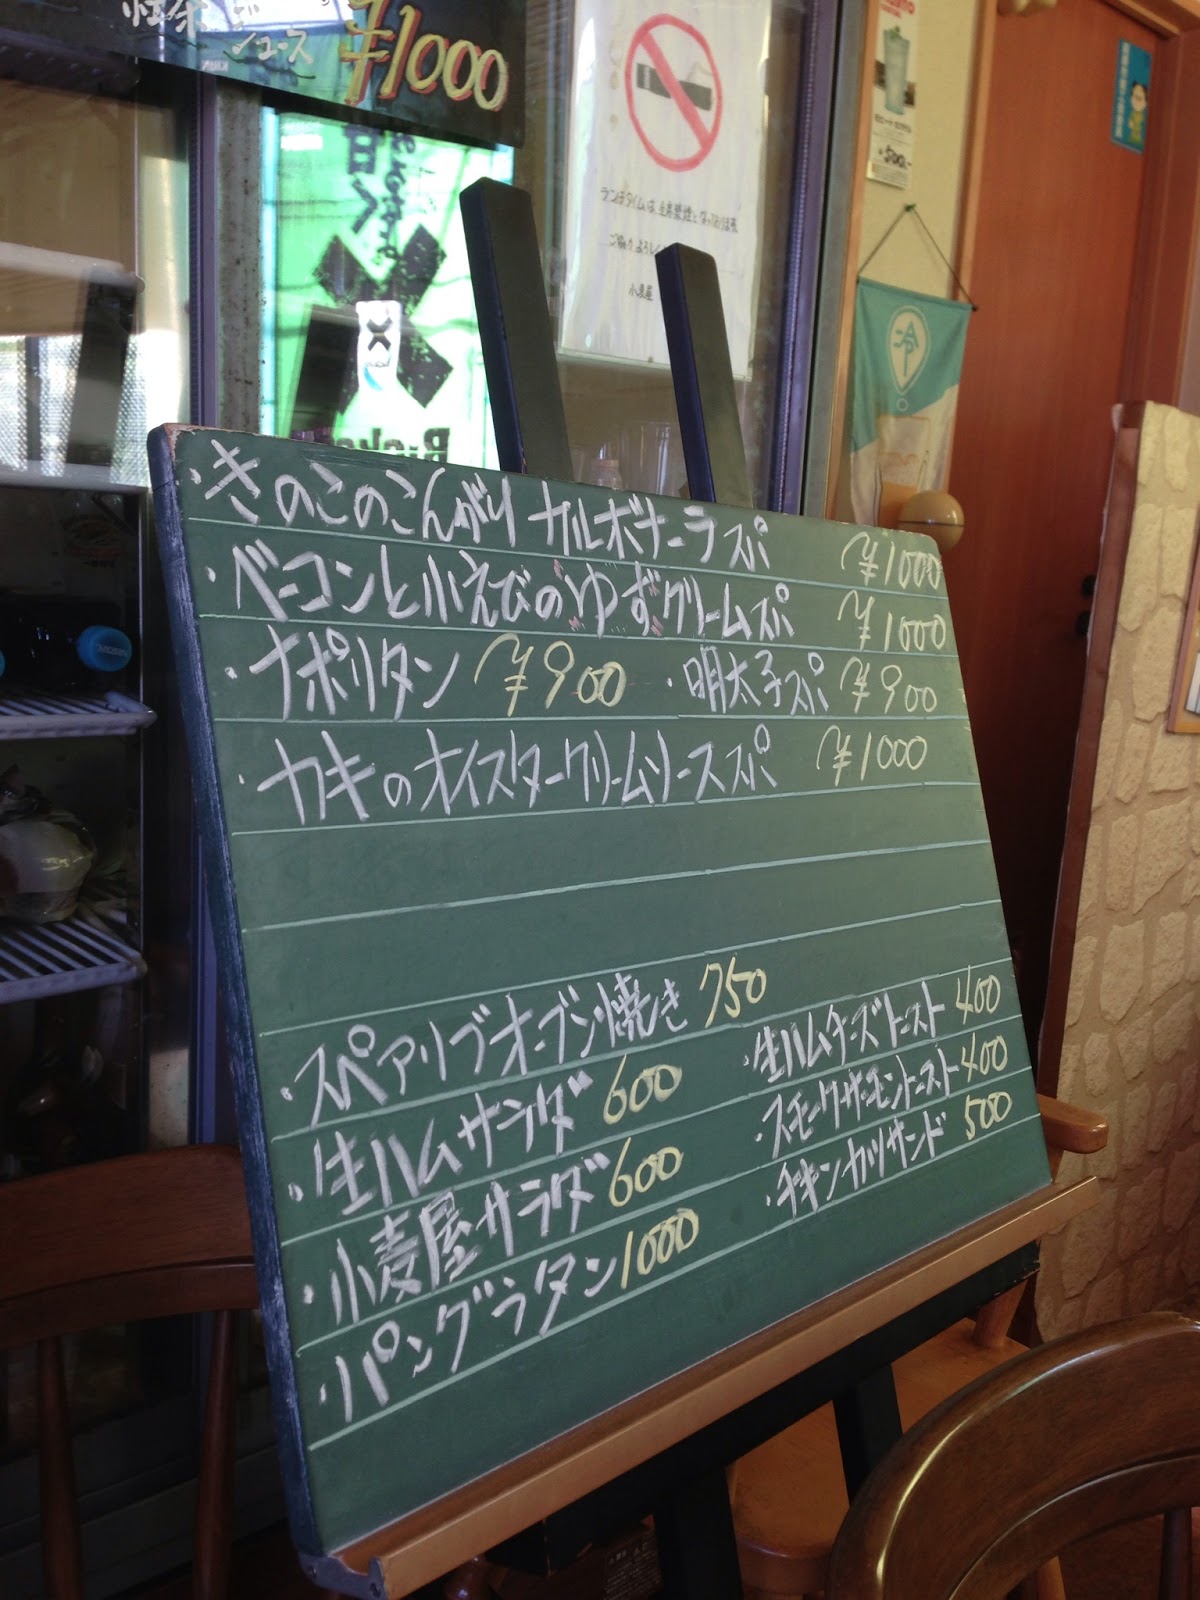 ジュース ¥1000
ランチタイムは、全席禁煙となっております
小麦屋
・きのこのこんがりカルボナーラスパ ¥1000
・ベーコンと小えびのゆずクリームスパ ¥1000
・ナポリタン ¥900 ・明太子スパ ¥900
・カキのオイスタークリームソーススパ ¥1000
・スペアリブオーブン焼き 750
・生ハムサラダ 600
・小麦屋サラダ 600
・パングラタン 1000
・生ハムチーズトースト 400
・スモークサーモントースト 400
・チキンカツサンド 500